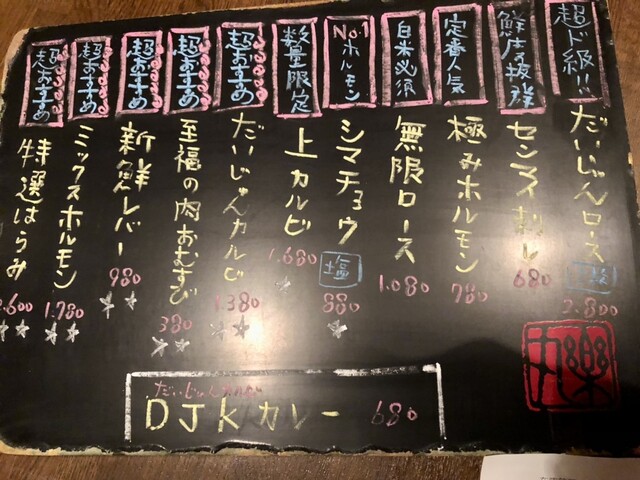 超ド級!!
だいじゅんロース
2.800
鮮度抜群
センマイ刺し
680
定番人気
極みホルモン
780
白米必須
無限ロース
1.080
No.1
ホルモン
シマチョウ
塩
880
数量限定
上カルビ
1.680
超おすすめ
だいじゅんカルビ
1.380
超おすすめ
至福の肉おむすび
380
超おすすめ
新鮮レバー
980
超おすすめ
ミックスホルモン
1.780
超おすすめ
特選はらみ
.600
DJKカレー
680